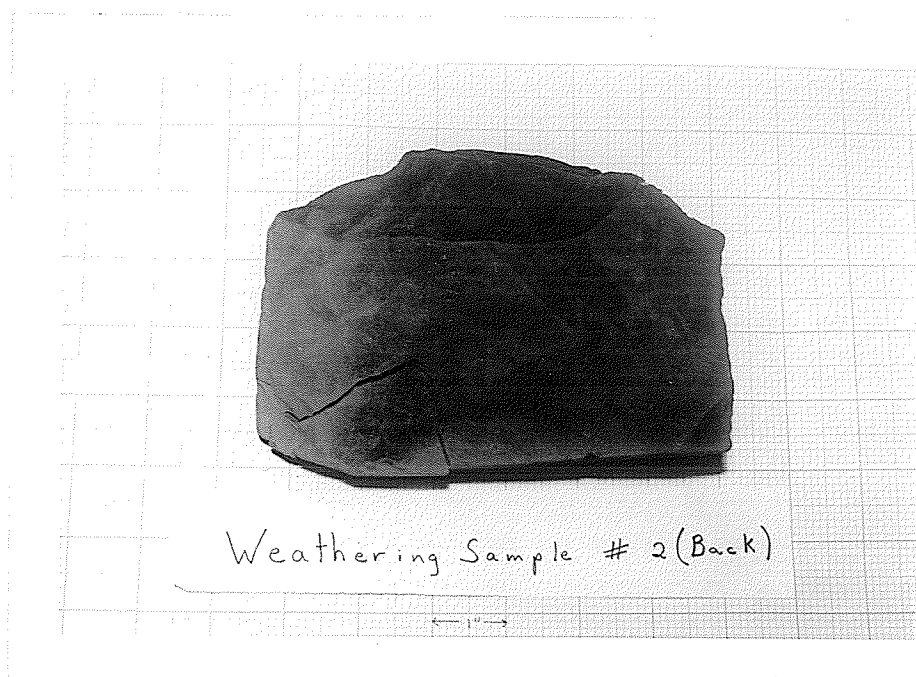 Weathering Sample # 2 (Back)
←1"→